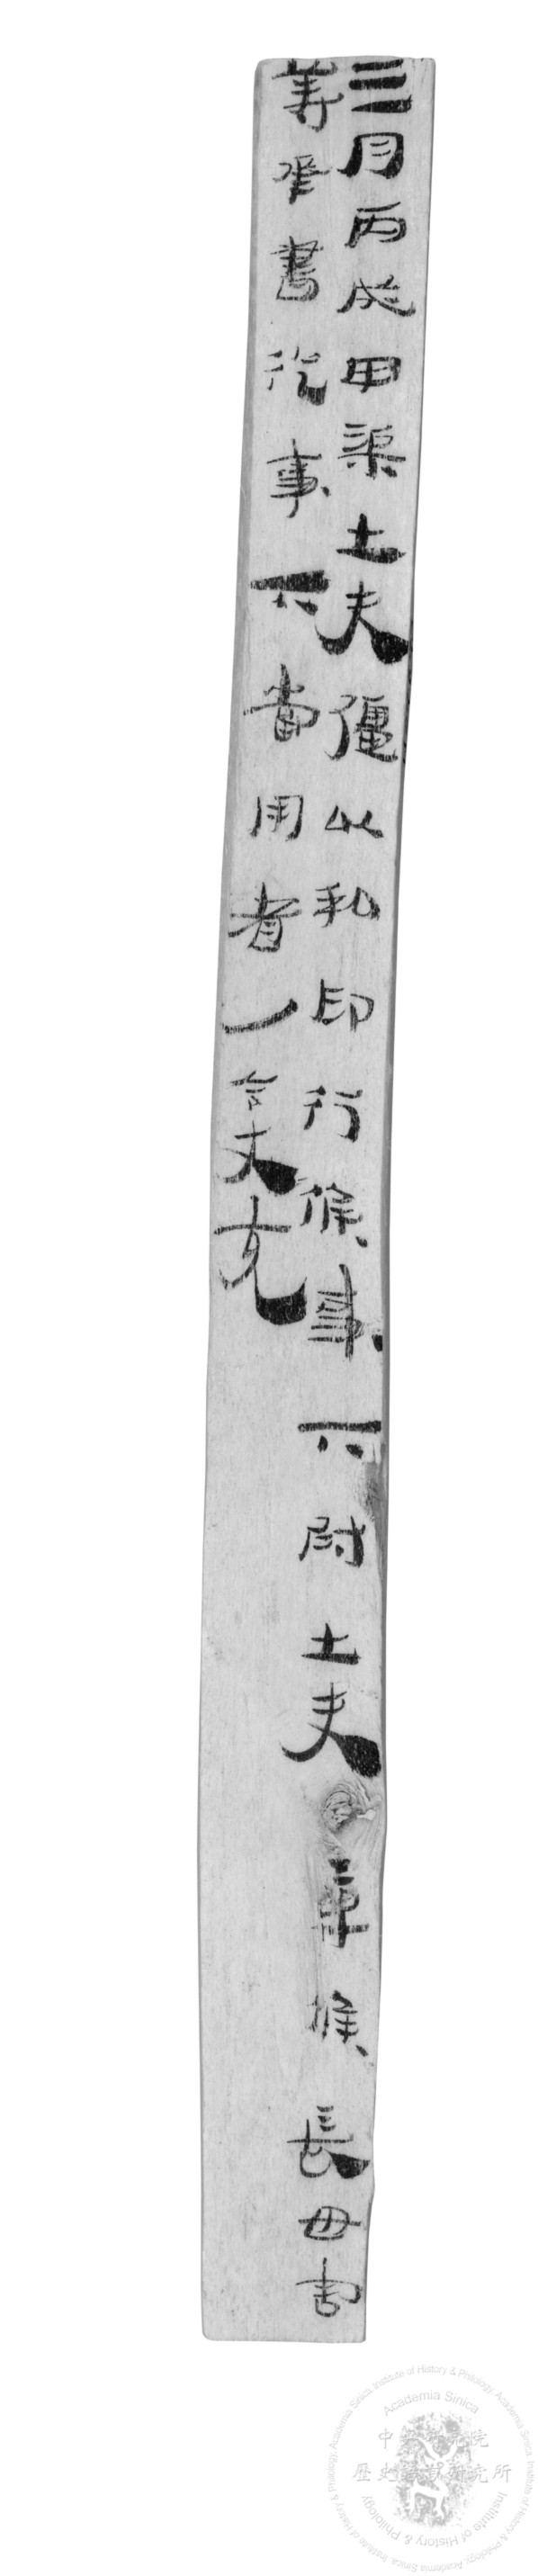 三月丙戌甲渠士吏彊以私印行候事下尉士吏章候長毋害
等承書從事下當用者/令史充
中央研究院
歷史語言研究所
Academia Sinica
Institute of History & Philology